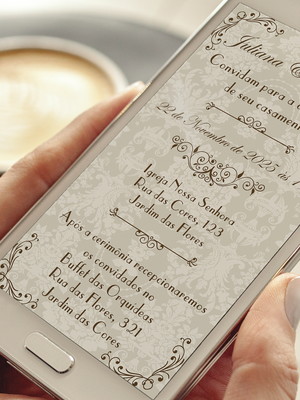 Juliana &
Convidam para a
de seu casamen
22 de Novembro de 2025 às
Igreja Nossa Senhora
Rua das Cores, 123
Jardim das Flores
Após a cerimônia recepcionaremos
os convidados no
Buffet das Orquídeas
Rua das Flores, 321
Jardim das Cores